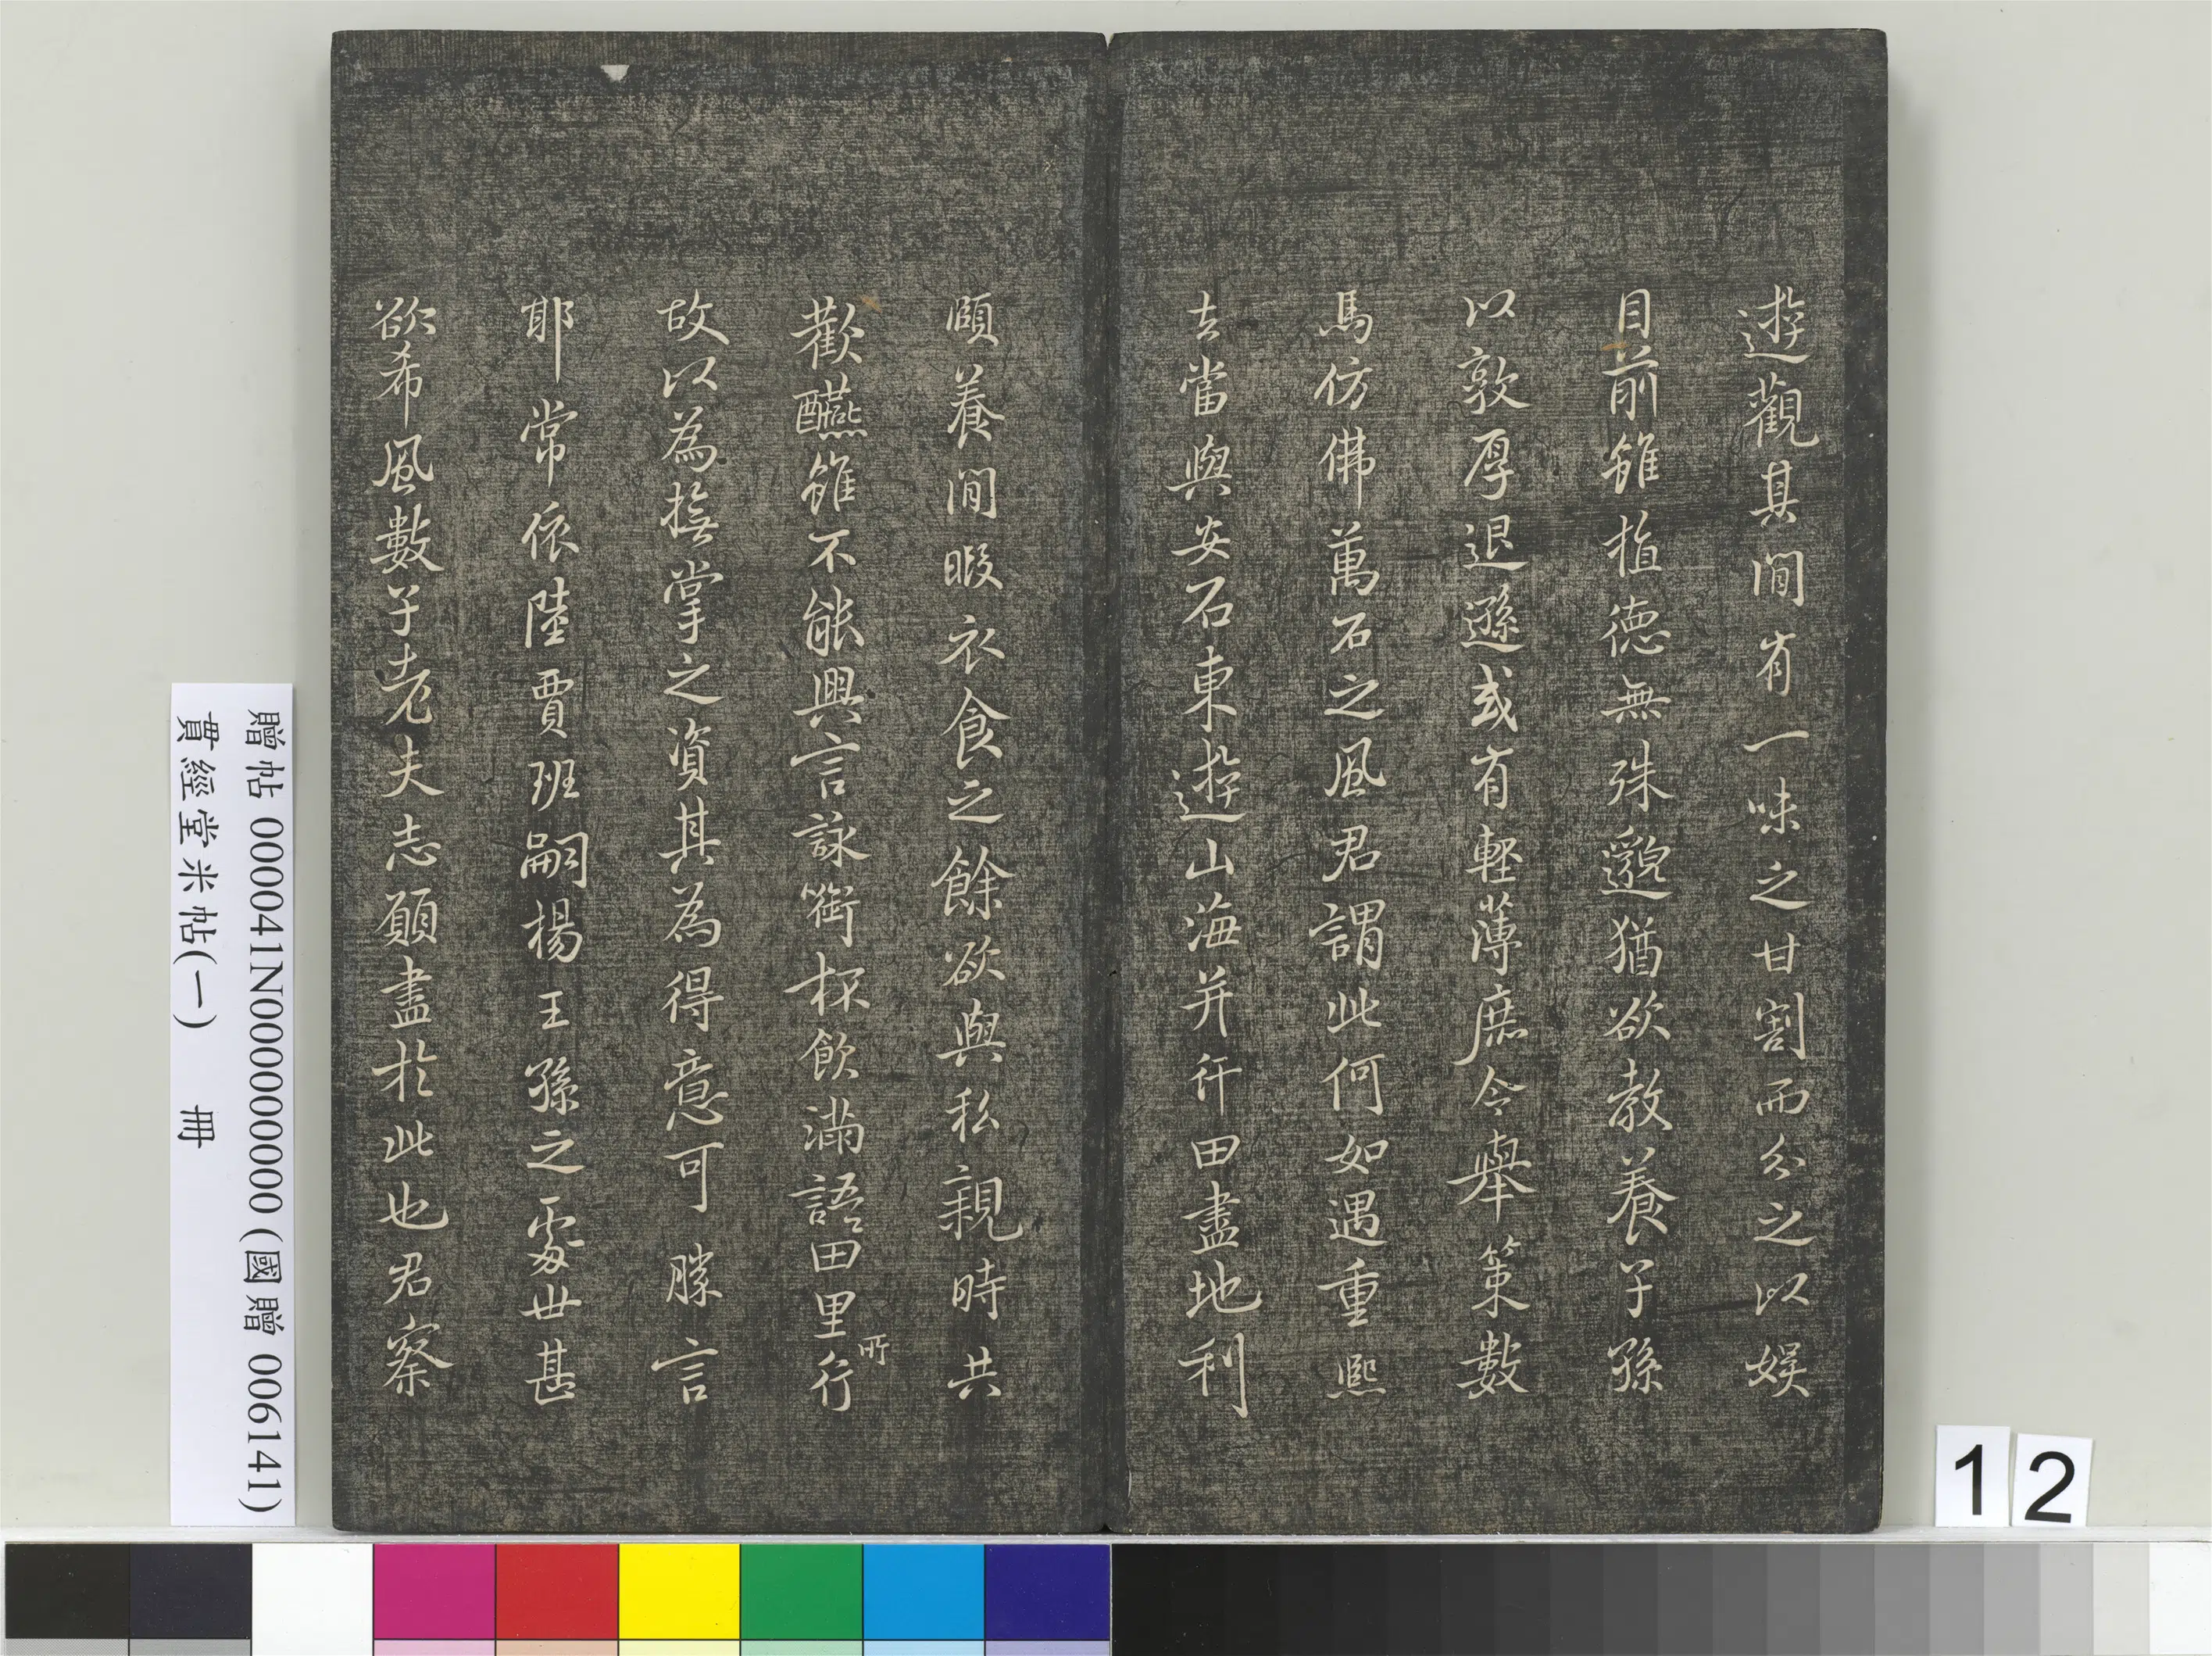 遊觀其間有一味之甘割而分之以娛
目前雖植德無殊邈猶欲教養子孫
以敦厚退遜或有輕薄庶令舉策數
馬仿佛萬石之風君謂此何如遇重熙
去當與安石東遊山海并行田盡地利
頤養閒暇衣食之餘欲與私親時共
歡醼雖不能興言詠銜杯飲滿語田里所行
故以為撫掌之資其為得意可勝言
耶常依陸賈班嗣楊王孫之處世甚
欲希風數子老夫志願盡於此也君察
贈帖 000041N000000000 (國贈 006141)
貫經堂米帖(一) 冊
12